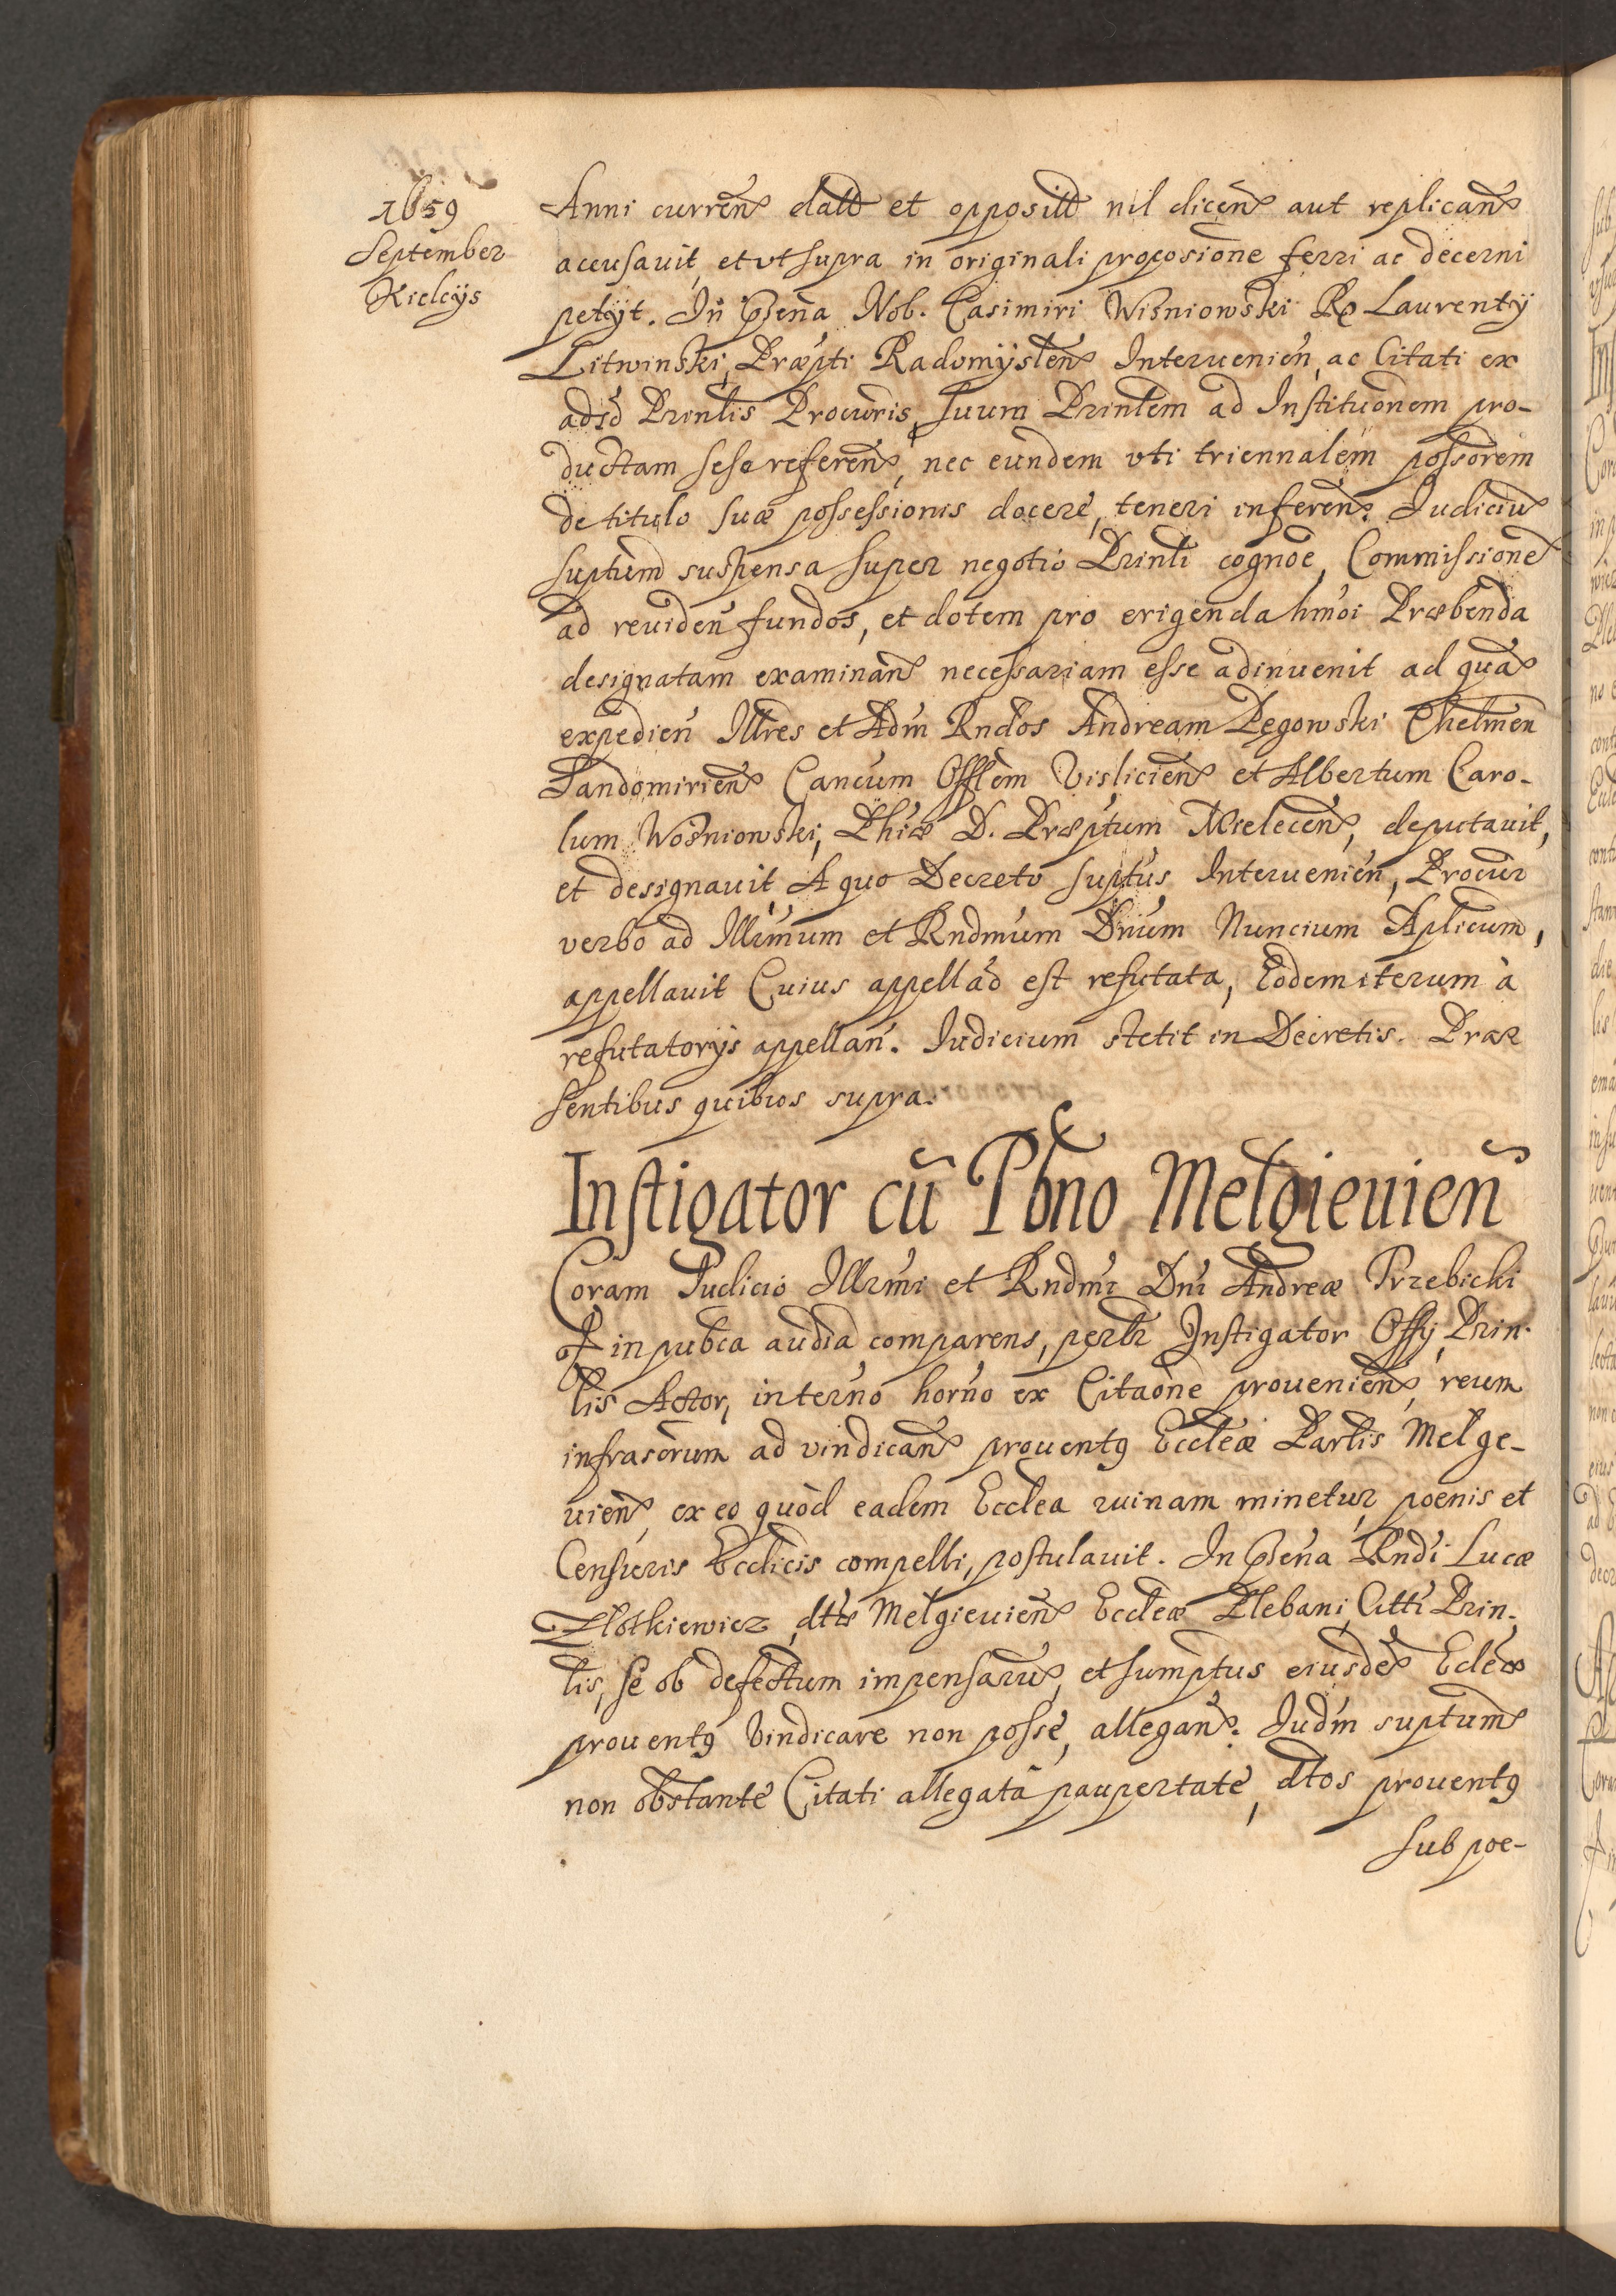 1659
September
Kielcijs
Anni curren̄ datt et oppositt nil dicen̄ aut replican̄
accusauit, et vt supra in originali proposione ferri ac decerni
petijt. In Pṡena Nob. Casimiri Wisniowski Rx Laurentij
Litwinski, Præpti Radomyslen̄ Interuenien̄, ac Citati ex
ad Prinlis Procuris, suum Prinlem ad Institu͠onem pro-
ductam sese referen̄, nec eundem vti triennalem possorem
de titulo suæ possessionis docere, teneri inferen̄. Judiciu͠
suptum suspensa super negotio Prinli cogno͠e, Commissione͠
ad reuiden̄ fundos, et dotem pro erigenda hm̄oi Præbenda
designatam examinan̄ necessariam esse adinuenit ad qua͠
expedien̄ Illres et Adm̄ Rndos Andream Pęgowski Chelmen̄
Sandomirien̄ Can͠cum Offlem Vislicien̄ et Albertum Caro-
lum Wosniowski, Phiæ D. Præptum Mielecen̄, deputauit,
et designauit, A quo Decreto suptus Interuenien̄, Procur
verbo ad Illrmum et Rndmum Dnum Nuncium Aplicum,
appellauit Cuius appella͠o est refutata, Eodem iterum à
refutatorijs appellan̄. Iudicium stetit in Decretis. Præ
sentibus quibus supra.
Instigator cū Pbno Melgieuien̄
Coram Judicio Illrmi et Rndmi Dni Andreæ Trzebicki
& in pubca audia comparens, perlr Instigator Offij, Prin-
lis Actor, in termo horno ex Cita͠one prouenien̄, reum
infrascrum ad vindican̄ prouentꝰ Eccleæ Parlis Melge-
uien̄, ex eo quòd eadem Ecclea ruinam minetur, poenis et
Censuris Ecclicis compelli, postulauit. In Pṡena Rndi Lucæ
Złotkiewicz, dttæ Melgieuien̄ Eccleæ Plebani, Citti Prin-
lis, se ob defectum impensaru͠, et sumptus eiusde͠ Ecleæ
prouentꝰ vindicare non posse, allegan̄. Judm suptum
non obstante Citati allegatâ paupertate, dtos prouentꝰ
sub poe-